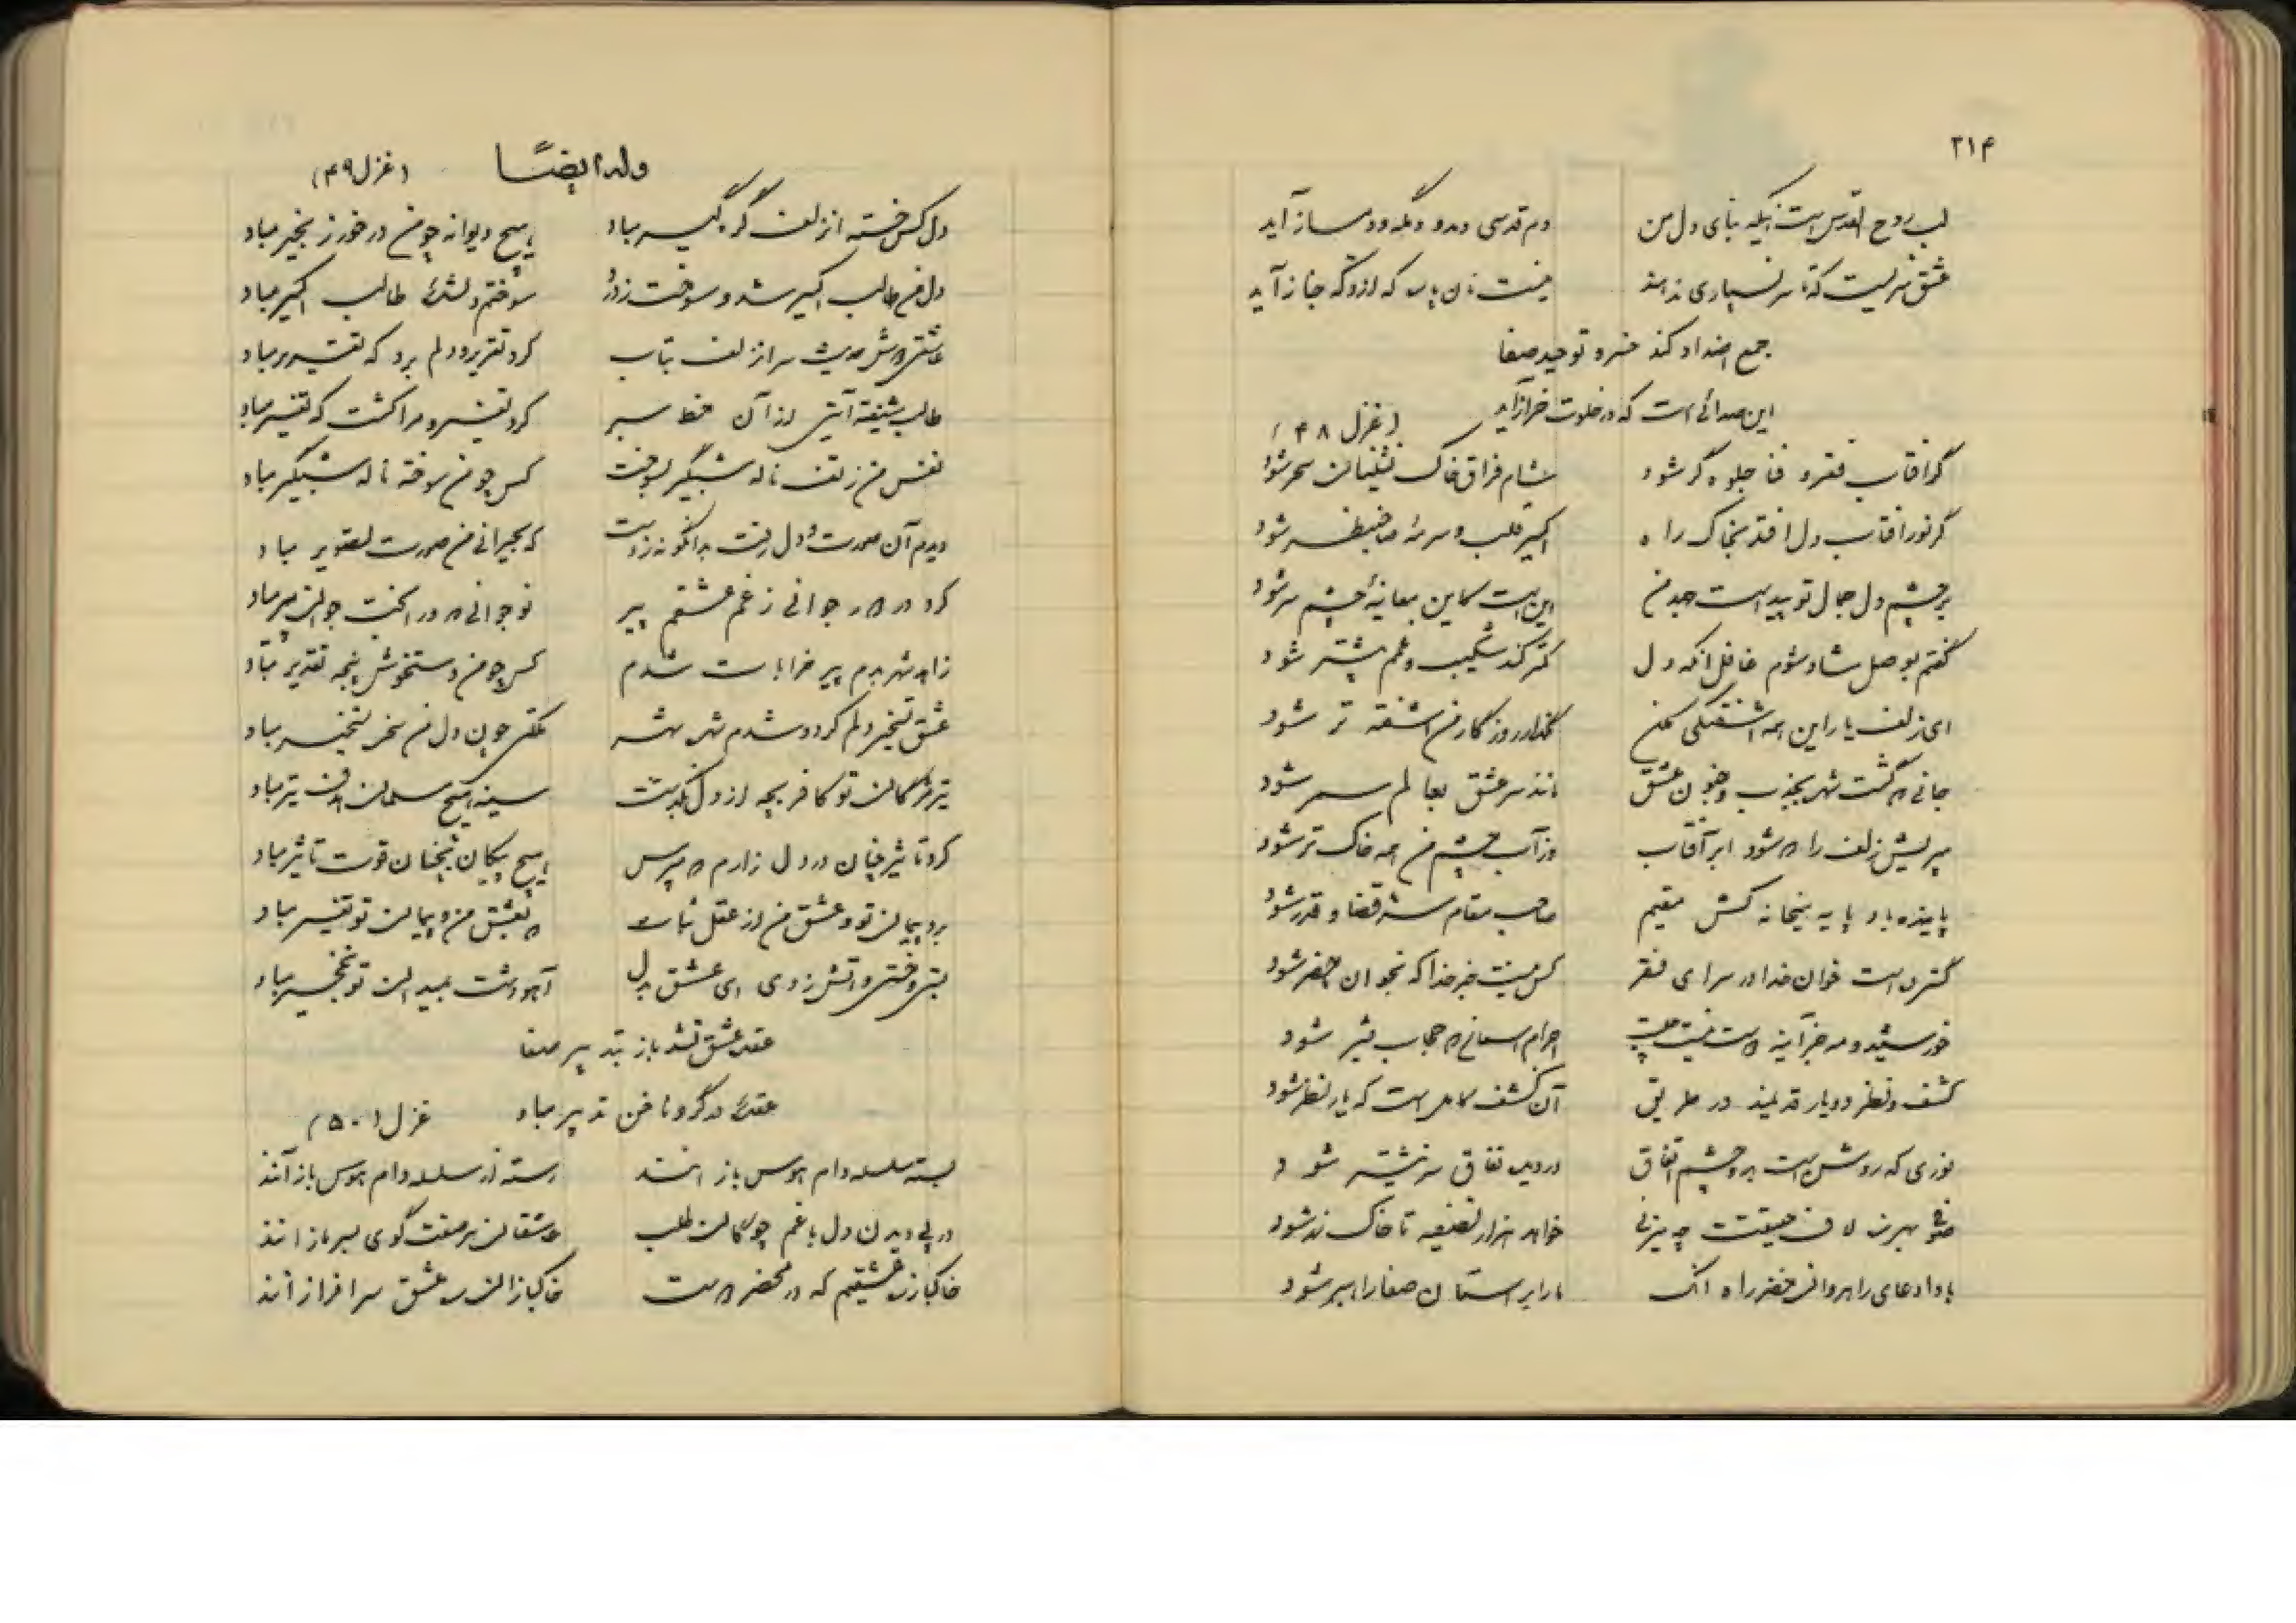 ۲۱۴
لب روح القدس است نیکه بنای دل من دم قدسی دمد و دمساز آید
عشق سریست که تا سر نسپاری ندهند نیست نان پاره که از دکه خباز آید
جمع اضداد کند خسرو توحید صفا
این صدائی است که در خلوت خر آزاید
(غزل ۴۸)
گر افتاب فقر و فنا جلوه گر شود شام فراق خاک نشینان سحر شود
گر نور افتاب دل افتد بخاک راه اکسیر قلب و سرمه صاحبنظر شود
بر چشم دل جمال تو پیداست جهد من این است کاین معاینهٔ چشم سر شود
گفتم بوصل شاد شوم غافل انکه دل کمتر کند شکیب و غم بیشتر شود
ای زلف یار این همه اشفتگی مکن مگذار روزگار من اشفته تر شود
جانی که گشت شهر بجذب و جنون عشق مانند سر عشق بعالم سمر شود
میپریش زلف را که شود ابر آفتاب وز آب چشم من همه خاک تر شود
پاینده باد پایه میخانه کش مقیم صاحب مقام قضا و قدر شود
گسترده است خوان خدا در سرای فقر کس نیست جز خدا که بخوان حضر شود
خورشید و مه جز آینه نیست اجرام اسمانی که حجاب بشر شود
کشف و نظر دو یار قدیمند در طریق آن کشف کامل است که یار نظر شود
نوری که روشن است بدو چشم اتفاق در دیده نفاق شود
صوفی حقیقت چه میزنی خواهد هزار تصفیه تا خاک زر شود
باد ادعای راهروان خضر راه انک ما را بر استان صفا راهبر شود
وله ایضاً (غزل ۴۹)
دل کس خسته از زلف گره گیر مباد هیچ دیوانه چو من در خور زنجیر مباد
دل من طالب اکسیر شد و سوخت ز درد سوختم دلشده طالب اکسیر مباد
سر از زلف بتاب کرد تقریر و دلم برد که تقریر مباد
طالب شیفته آیتی از آن خط سبز کرد تفسیر و مرا کشت که تفسیر مباد
نفس من ز تف ناله شبگیر بسوخت کس چو من سوخته ناله شبگیر مباد
دیدم آن صورت و دل رفت بدانگونه ز دست که بحیرانی من صورت تصویر مباد
کرد در جوانی ز غم عشقم پیر نو جوانی که در انجت جوانی پیر مباد
زاهد شهر بدم پیر خرابات شدم کس چو من دستخوش پنجه تقدیر مباد
عشق تسخیر دلم کرد و شدم شهر بشهر ملکی چون دل من سخره تسخیر مباد
تیر مژگان تو کافر بچه از دل بگذشت سینه هیچ مسلمان هدف تیر مباد
کرد تاثیر چنان در دل زارم که مپرس هیچ پیکان بچنان قوت تاثیر مباد
برد پیمان تو و عشق من از عقل ثبات که بعشق من و پیمان تو تغییر مباد
اتش زدی ای عشق بدل آهو دشت بمیدان تو نخجیر مباد
عقده عشق نشد باز بتدبیر صفا
عقده در گرو ناخن تدبیر مباد
غزل (۵۰)
بسته سلسله دام هوس باز امدند رسته از سلسله دام هوس باز آمدند
در پی دیدن دل با غم چوگان طلب عاشقان بر صفت گوی بسر باز امدند
خاکباز ره عشقیم که در محضر دوست خاکبازان ره عشق سر افراز امدند